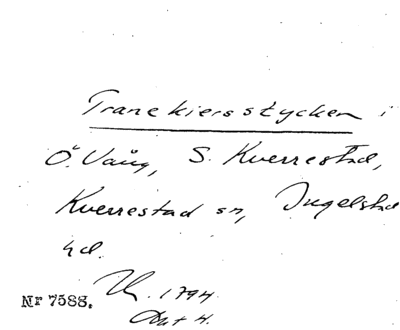 Tranekiersstycken i
Ö. Vång, S. Kverrestad,
Kverrestad sn, Ingelstad
hd.
Nr 7588. 1794
Akt 4.